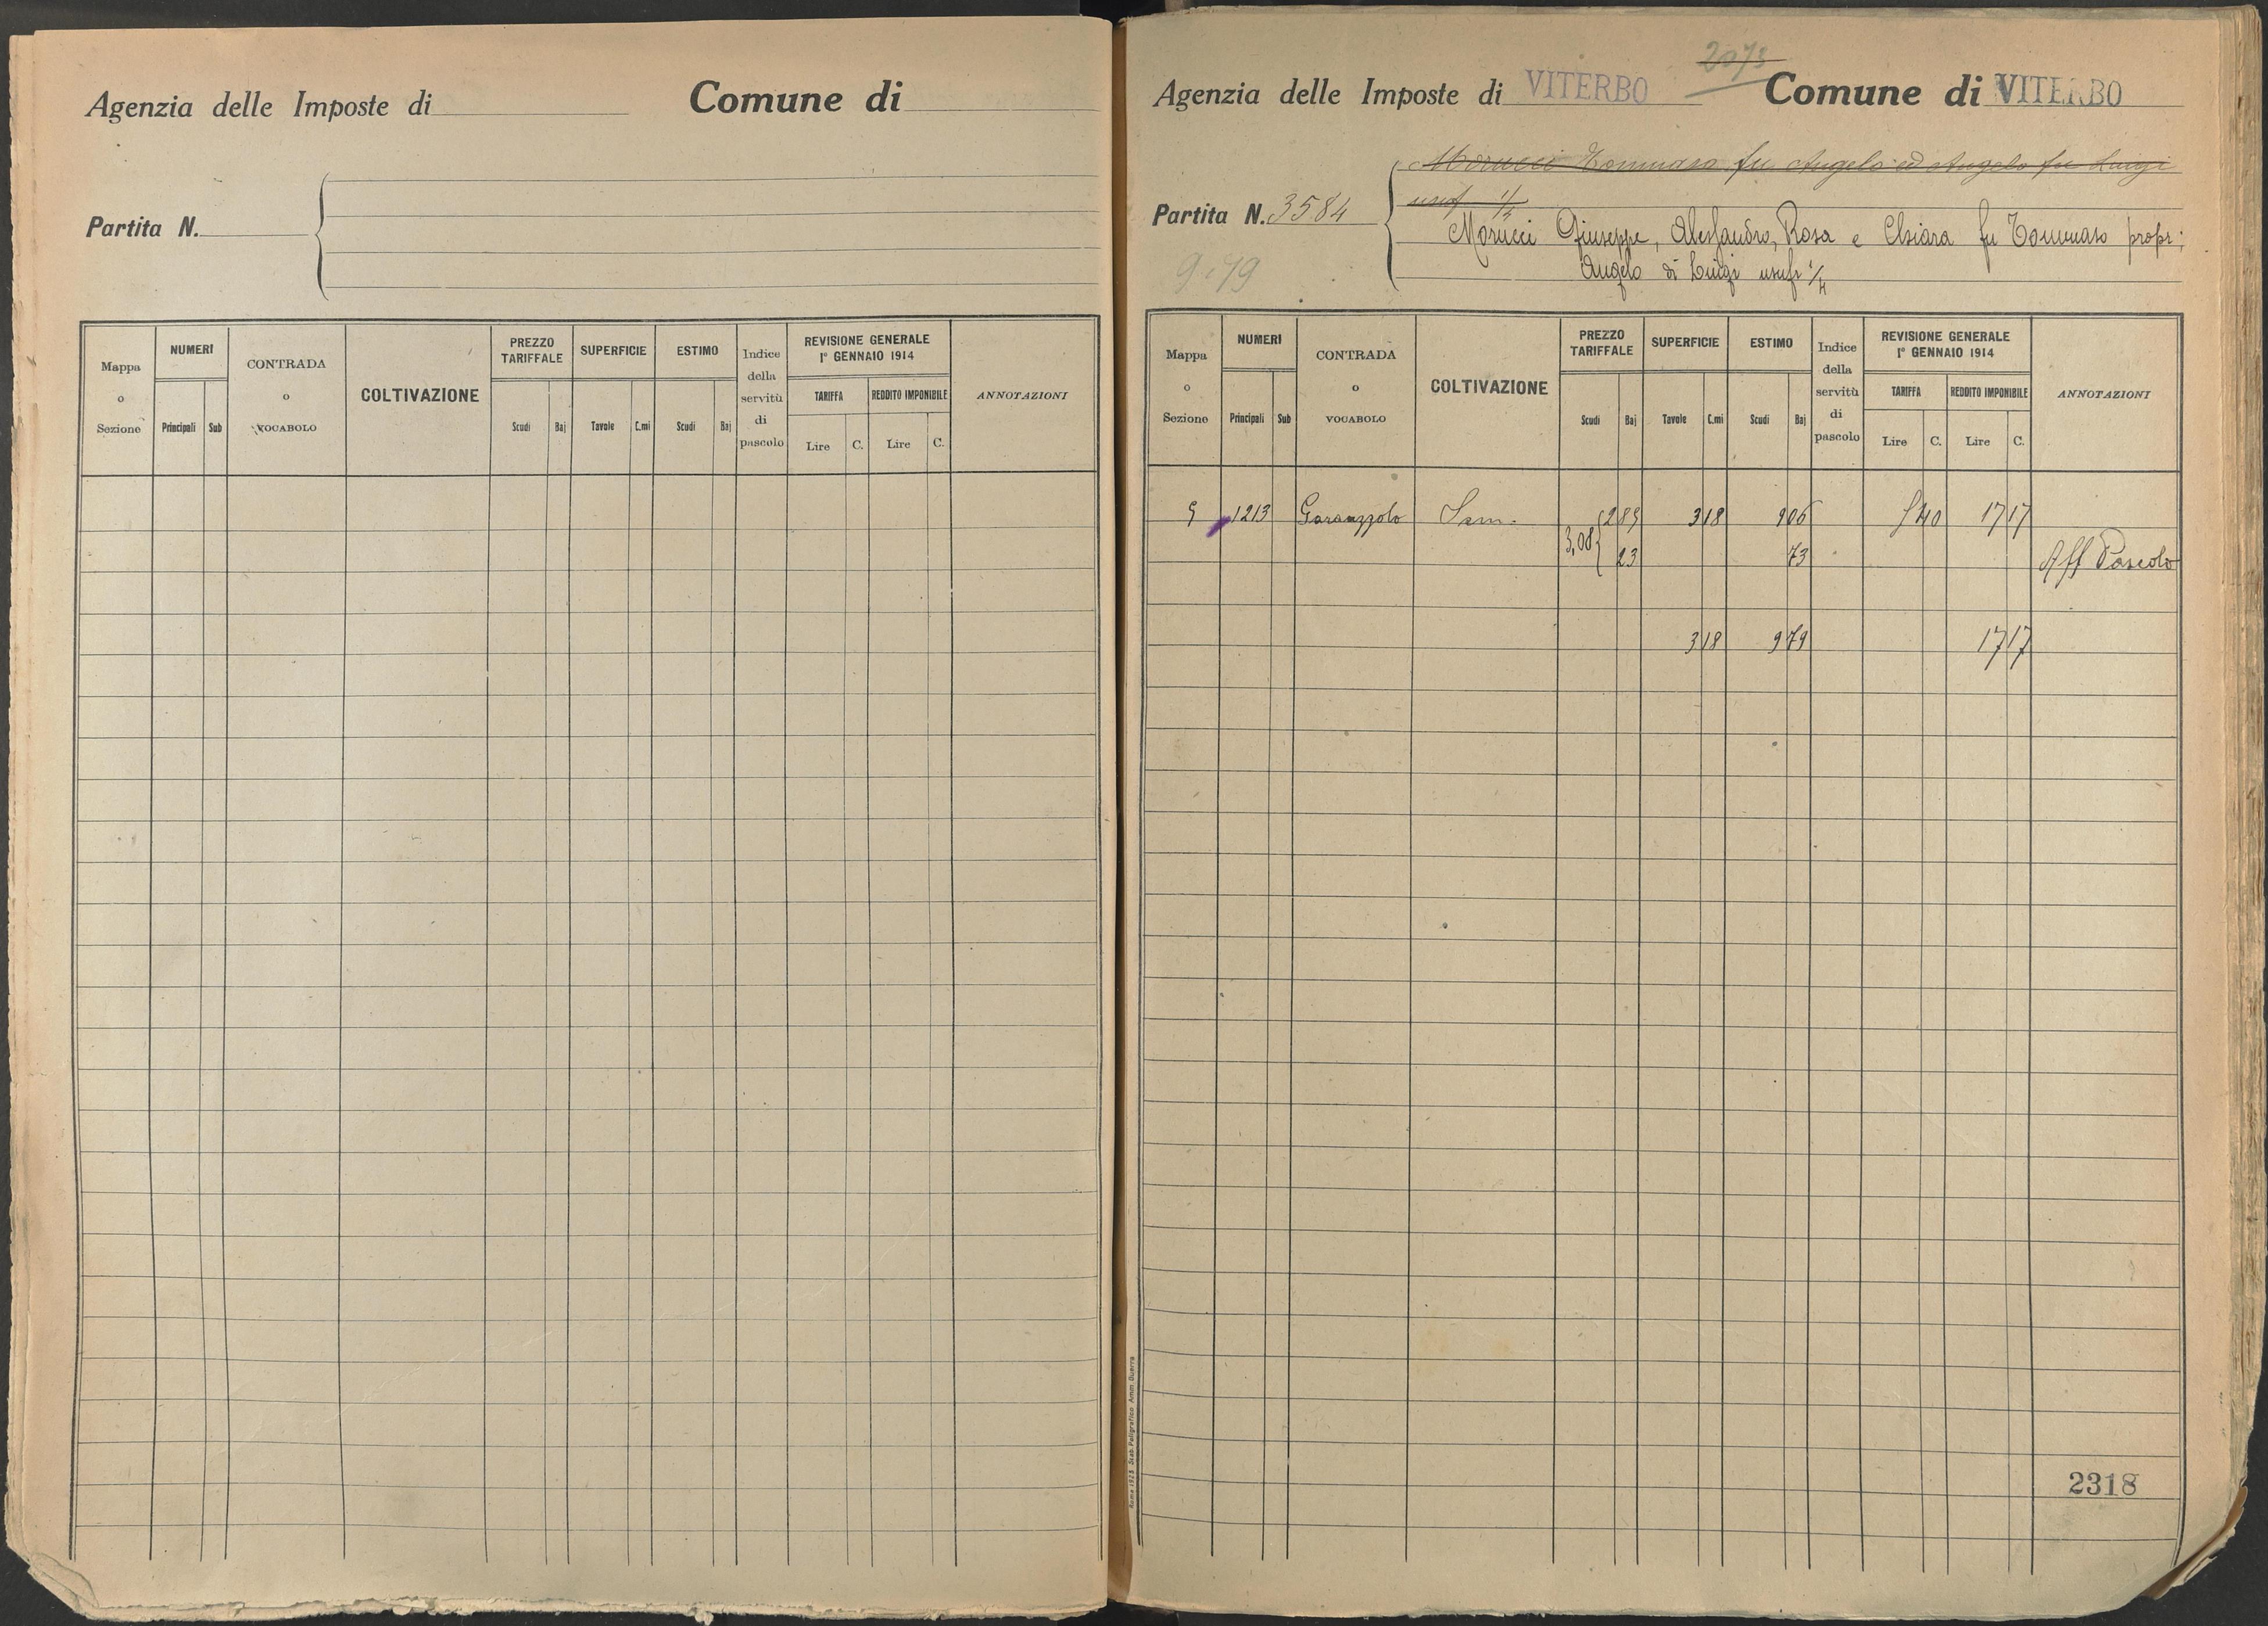 Agenzia delle Imposte di Comune di
Partita N.
Mappa o Sezione NUMERI Principali Sub CONTRADA o VOCABOLO COLTIVAZIONE PREZZO TARIFFALE Scudi Baj SUPERFICIE Tavole C.mi ESTIMO Scudi Baj Indice della servitù di pascolo REVISIONE GENERALE 1° GENNAIO 1914 TARIFFA Lire C. REDDITO IMPONIBILE Lire C. ANNOTAZIONI
2073
Agenzia delle Imposte di VITERBO Comune di VITERBO
Morucci Tommaso fu Angelo ed Angelo fu Luigi
usuf
Partita N. 3584
Morucci Giuseppe, Alessandro, Rosa e Chiara fu Tommaso propr;
Angelo di Luigi usufr 1/4
9.79
Mappa o Sezione NUMERI Principali Sub CONTRADA o VOCABOLO COLTIVAZIONE PREZZO TARIFFALE Scudi Baj SUPERFICIE Tavole C.mi ESTIMO Scudi Baj Indice della servitù di pascolo REVISIONE GENERALE 1° GENNAIO 1914 TARIFFA Lire C. REDDITO IMPONIBILE Lire C. ANNOTAZIONI
1213 Sem. 2 85 3 18 9 06 5 40 17 17
3,08 23 73 Aff Pascolo
3 18 9 79 17 17
2318
Roma 1923 Stab. Poligrafico Amm. Guerra